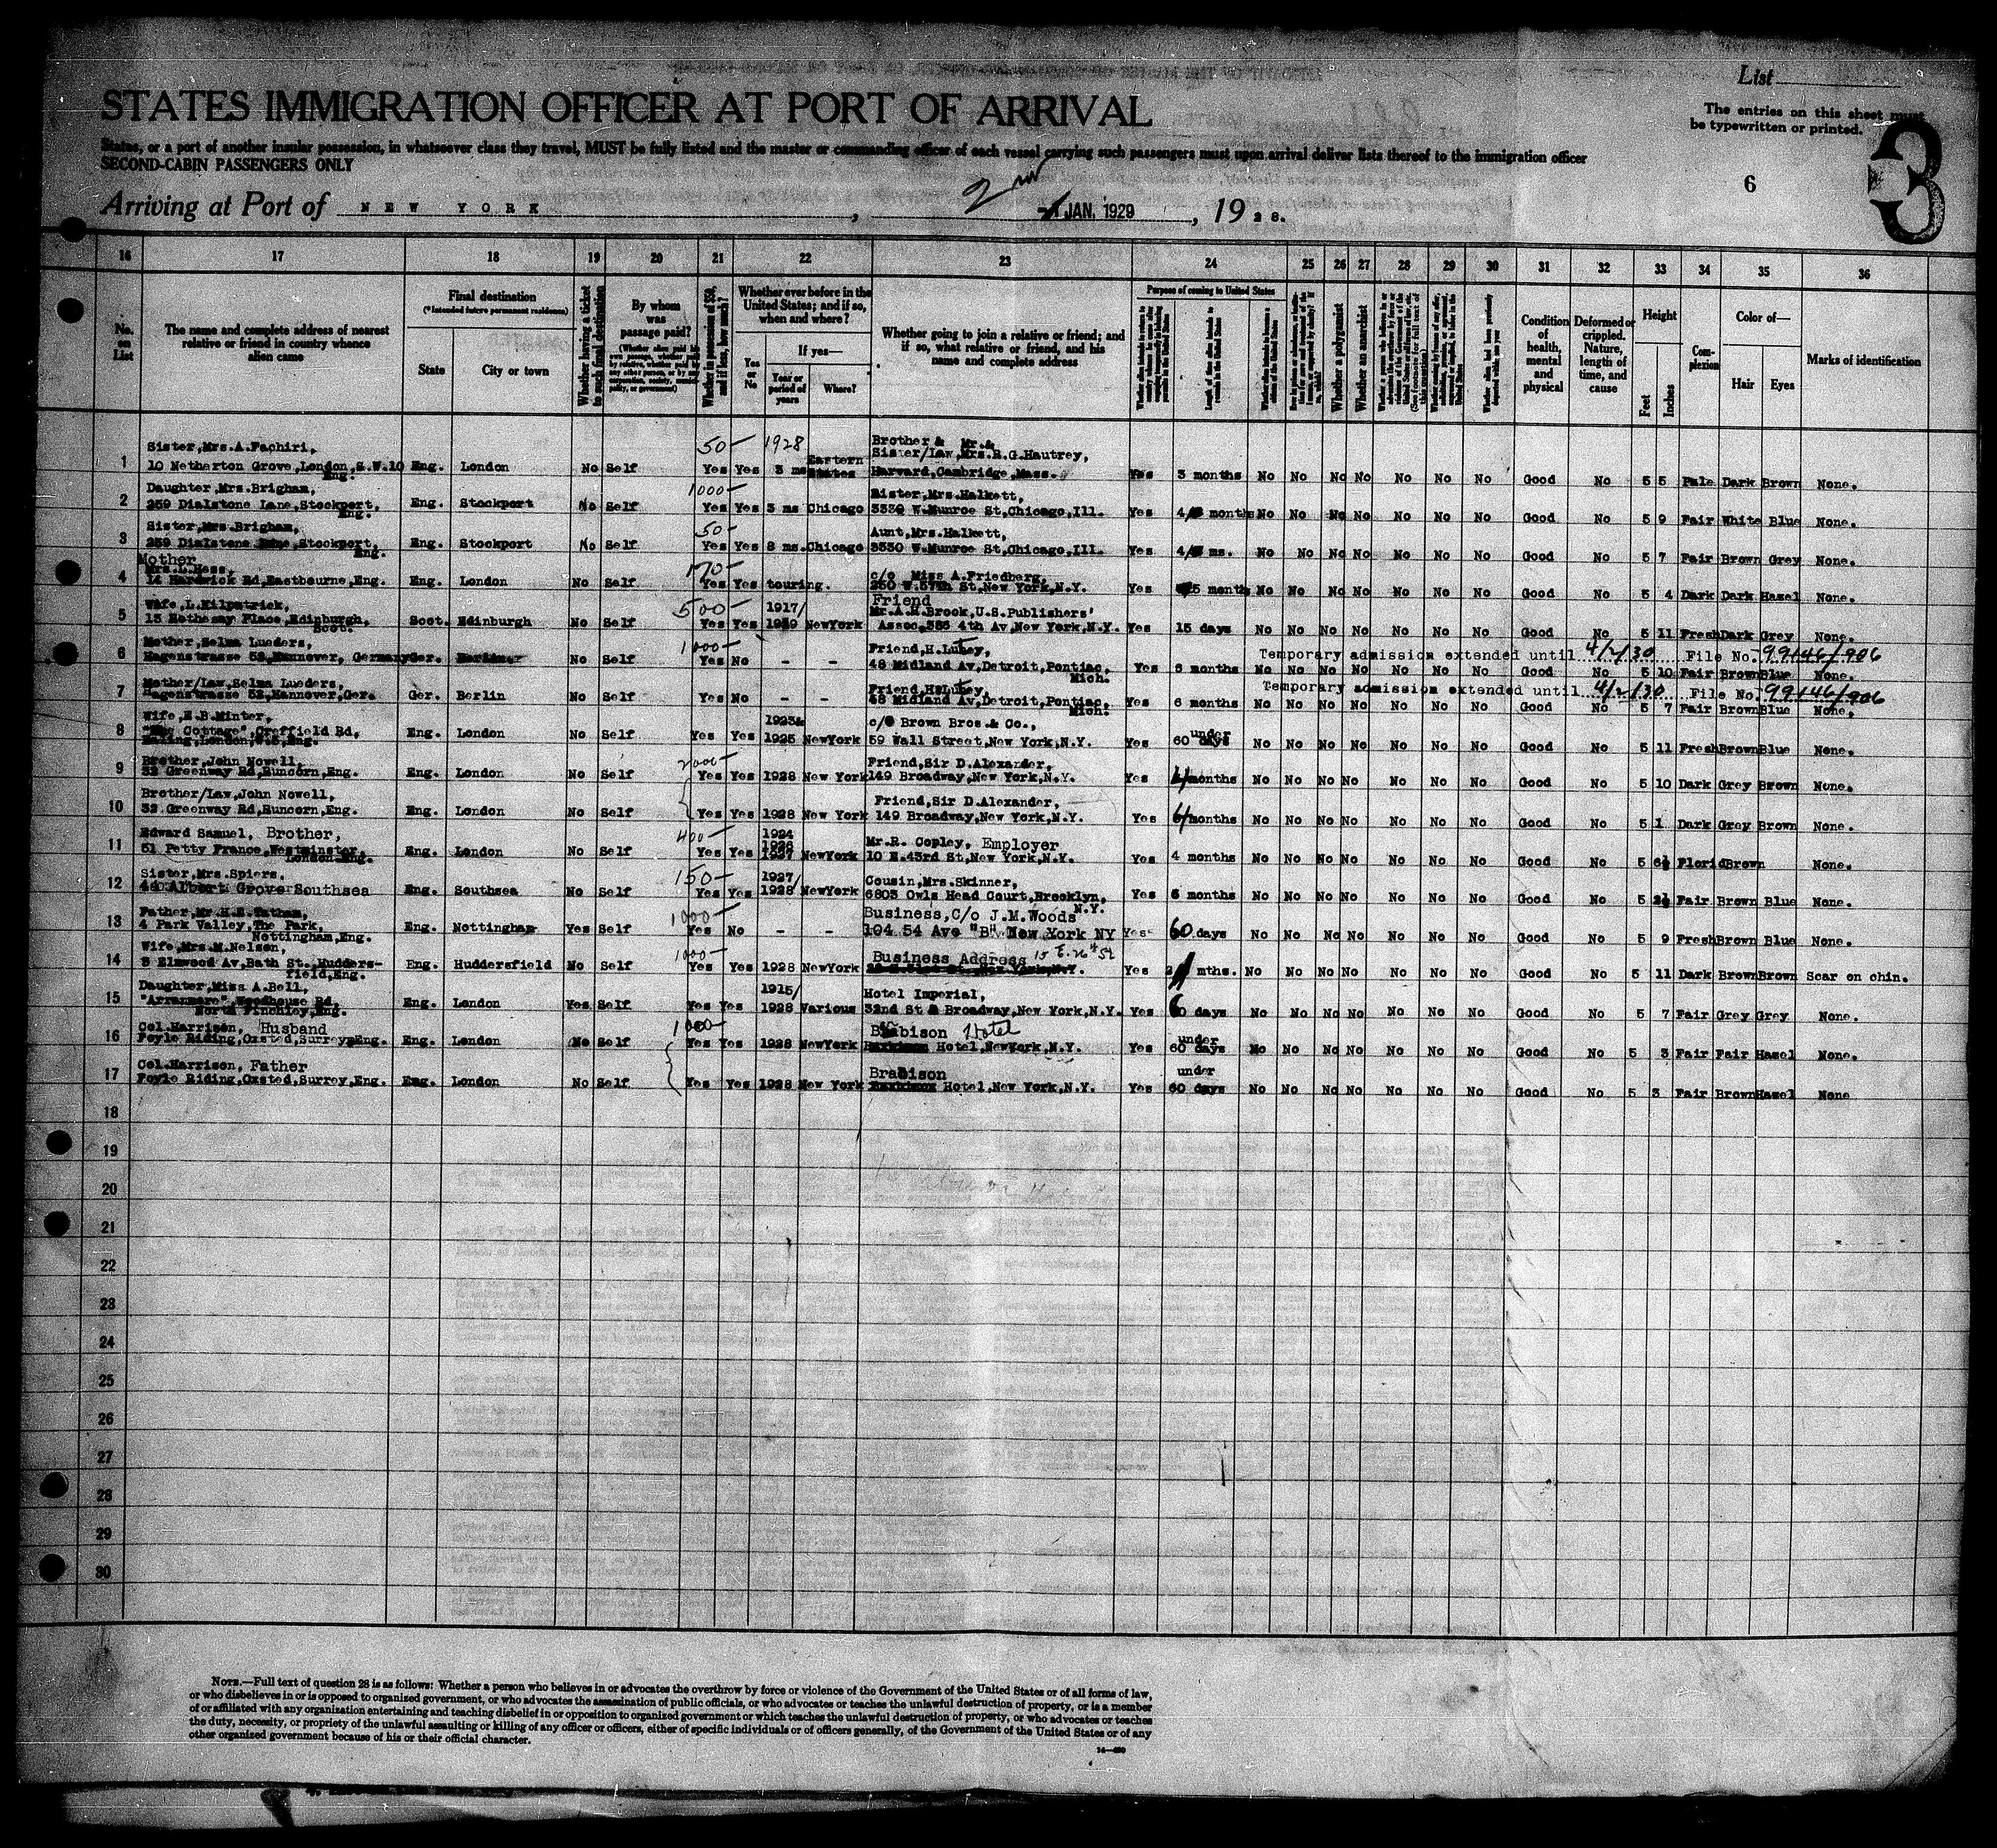 List
STATES IMMIGRATION OFFICER AT PORT OF ARRIVAL
The entries on this sheet must
be typewritten or printed.
States, or a port of another insular possession, in whatsoever class they travel, MUST be fully listed and the master or commanding officer of each vessel carrying such passengers must upon arrival deliver lists thereof to the immigration officer
SECOND-CABIN PASSENGERS ONLY
3
6
Arriving at Port of NEW YORK, 2nd JAN, 1929, 1928.
16 17 18 19 20 21 22 23 24 25 26 27 28 29 30 31 32 33 34 35 36
No. on List
The name and complete address of nearest relative or friend in country whence alien came
Final destination
(*Intended future permanent residence)
State
City or town
Whether having a ticket to such final destination
By whom was passage paid?
Whether in possession of $50, and if less, how much?
Whether ever before in the United States; and if so, when and where?
Yes or No
If yes—
Year or period of years
Where?
Whether going to join a relative or friend; and if so, what relative or friend, and his name and complete address
Purpose of coming to United States
Whether a polygamist
Whether an anarchist
Condition of health, mental and physical
Deformed or crippled. Nature, length of time, and cause
Height
Feet
Inches
Complexion
Color of—
Hair
Eyes
Marks of identification
1 Sister, Mrs. A. Fachiri, 50— 1928 Brother & Mr. &
10 Netherton Grove, London, S.W.10 Eng. Eng. London No Self Yes Yes 3 ms Eastern States Sister/Law, Mrs. R.G. Hautrey, Harvard, Cambridge, Mass. Yes 3 months No No No No No No No Good No 5 5 Pale Dark Brown None.
2 Daughter, Mrs. Brigham, 1000— Sister, Mrs. Halkett,
259 Dialstone Lane, Stockport, Eng. Eng. Stockport No Self Yes Yes 3 ms Chicago 3330 W. Munroe St, Chicago, Ill. Yes 4 months No No No No No No No Good No 5 9 Fair White Blue None.
3 Sister, Mrs. Brigham, 50— Aunt, Mrs. Halkett,
259 Dialstone Lane, Stockport, Eng. Eng. Stockport No Self Yes Yes 8 ms. Chicago 3330 W. Munroe St, Chicago, Ill. Yes 4 ms. No No No No No No No Good No 5 7 Fair Brown Grey None.
4 Mother Mrs. L. Hess, 170— c/o Miss A. Friedberg,
14 Hardwick Rd, Eastbourne, Eng. Eng. London No Self Yes Yes touring. 250 W. 57th St, New York, N.Y. Yes 5 months No No No No No No No Good No 5 4 Dark Dark Hazel None.
5 Wife, L. Kilpatrick, 500— 1917/ Friend Mr. A.H. Brook, U.S. Publishers'
13 Rothesay Place, Edinburgh, Scot. Scot. Edinburgh No Self Yes Yes New York Assoc, 4th Av, New York, N.Y. Yes 15 days No No No No No No No Good No 5 11 Fresh Dark Grey None.
6 Mother, Selma Lueders, 1000— Friend, H. Lubey, Temporary admission extended until 4/2/30 File No. 99146/906
Hagenstrasse 52, Hannover, Germany Ger. No Self Yes No - - 48 Midland Av, Detroit, Pontiac, Mich. Yes 6 months No No No No No No No Good No 5 10 Fair Blue None.
7 Mother/Law, Selma Lueders, Friend H. Lubey, Temporary admission extended until 4/2/30 File No. 99146/906
Hagenstrasse 52, Hannover, Ger. Ger. Berlin No Self Yes No - - 48 Midland Av, Detroit, Pontiac, Mich. Yes 6 months No No No No No No No Good No 5 7 Fair Brown Blue None.
8 Wife, E.B. Minter, 1923& c/o Brown Bros. & Co., under
"The Cottage", Creffield Rd, Ealing, London, W.5, Eng. Eng. London No Self Yes Yes 1925 New York 59 Wall Street, New York, N.Y. Yes 60 days No No No No No No No Good No 5 11 Fresh Brown Blue None.
9 Brother, John Nowell, 2000— Friend, Sir D. Alexander,
32 Greenway Rd, Runcorn, Eng. Eng. London No Self Yes Yes 1928 New York 149 Broadway, New York, N.Y. Yes months No No No No No No No Good No 5 10 Dark Grey Brown None.
10 Brother/Law, John Nowell, Friend, Sir D. Alexander,
32 Greenway Rd, Runcorn, Eng. Eng. London No Self Yes Yes 1928 New York 149 Broadway, New York, N.Y. Yes 6/months No No No No No No No Good No 5 1 Dark Grey Brown None.
11 Edward Samuel, Brother, 400— 1924 1926 Mr. R. Copley, Employer
51 Petty France, Westminster, London Eng. Eng. London No Self Yes Yes 1927 New York 10 E. 43rd St, New York, N.Y. Yes 4 months No No No No No No No Good No 5 6½ Florid Brown None.
12 Sister, Mrs. Spiers, 150— 1927/ Cousin, Mrs. Skinner,
Albert Grove Southsea Eng. Southsea No Self Yes Yes 1928 New York 6803 Owls Head Court, Brooklyn, N.Y. Yes 6 months No No No No No No No Good No 5 2½ Fair Brown Blue None.
13 Father, Mr. H.E. Tatham, 1000— Business, C/o J.M. Woods
4 Park Valley, The Park, Nottingham, Eng. Eng. Nottingham Yes Self Yes No - - 104 54 Ave "B" New York NY Yes 60 days No No No No No No No Good No 5 9 Fresh Brown Blue None.
14 Wife, Mrs. M. Nelson, 1000— Business Address 15 E. 26th St
3 Elmwood Av, Bath St., Huddersfield, Eng. Eng. Huddersfield No Self Yes Yes 1928 New York Yes mths. No No No No No No No Good No 5 11 Dark Brown Brown Scar on chin.
15 Daughter, Miss A. Bell, 1915/ Hotel Imperial,
"Arranmore", Woodhouse Rd, North Finchley, Eng. Eng. London Yes Self Yes Yes 1928 Various 32nd St & Broadway, New York, N.Y. Yes 60 days No No No No No No No Good No 5 7 Fair Grey Grey None.
16 Col. Harrison, Husband 1000— Brabison Hotel under
Foyle Riding, Oxsted, Surrey, Eng. Eng. London No Self Yes Yes 1928 New York Hotel, New York, N.Y. Yes 60 days No No No No No No No Good No 5 3 Fair Fair Hazel None.
17 Col. Harrison, Father Brabison under
Foyle Riding, Oxsted, Surrey, Eng. Eng. London No Self Yes Yes 1928 New York Hotel, New York, N.Y. Yes 60 days No No No No No No No Good No 5 3 Fair Brown Hazel None
18
19
20
21
22
23
24
25
26
27
28
29
30
NOTE.—Full text of question 28 is as follows: Whether a person who believes in or advocates the overthrow by force or violence of the Government of the United States or of all forms of law,
or who disbelieves in or is opposed to organized government, or who advocates the assassination of public officials, or who advocates or teaches the unlawful destruction of property, or is a member
of or affiliated with any organization entertaining and teaching disbelief in or opposition to organized government or which teaches the unlawful destruction of property, or who advocates or teaches
the duty, necessity, or propriety of the unlawful assaulting or killing of any officer or officers, either of specific individuals or of officers generally, of the Government of the United States or of any
other organized government because of his or their official character.